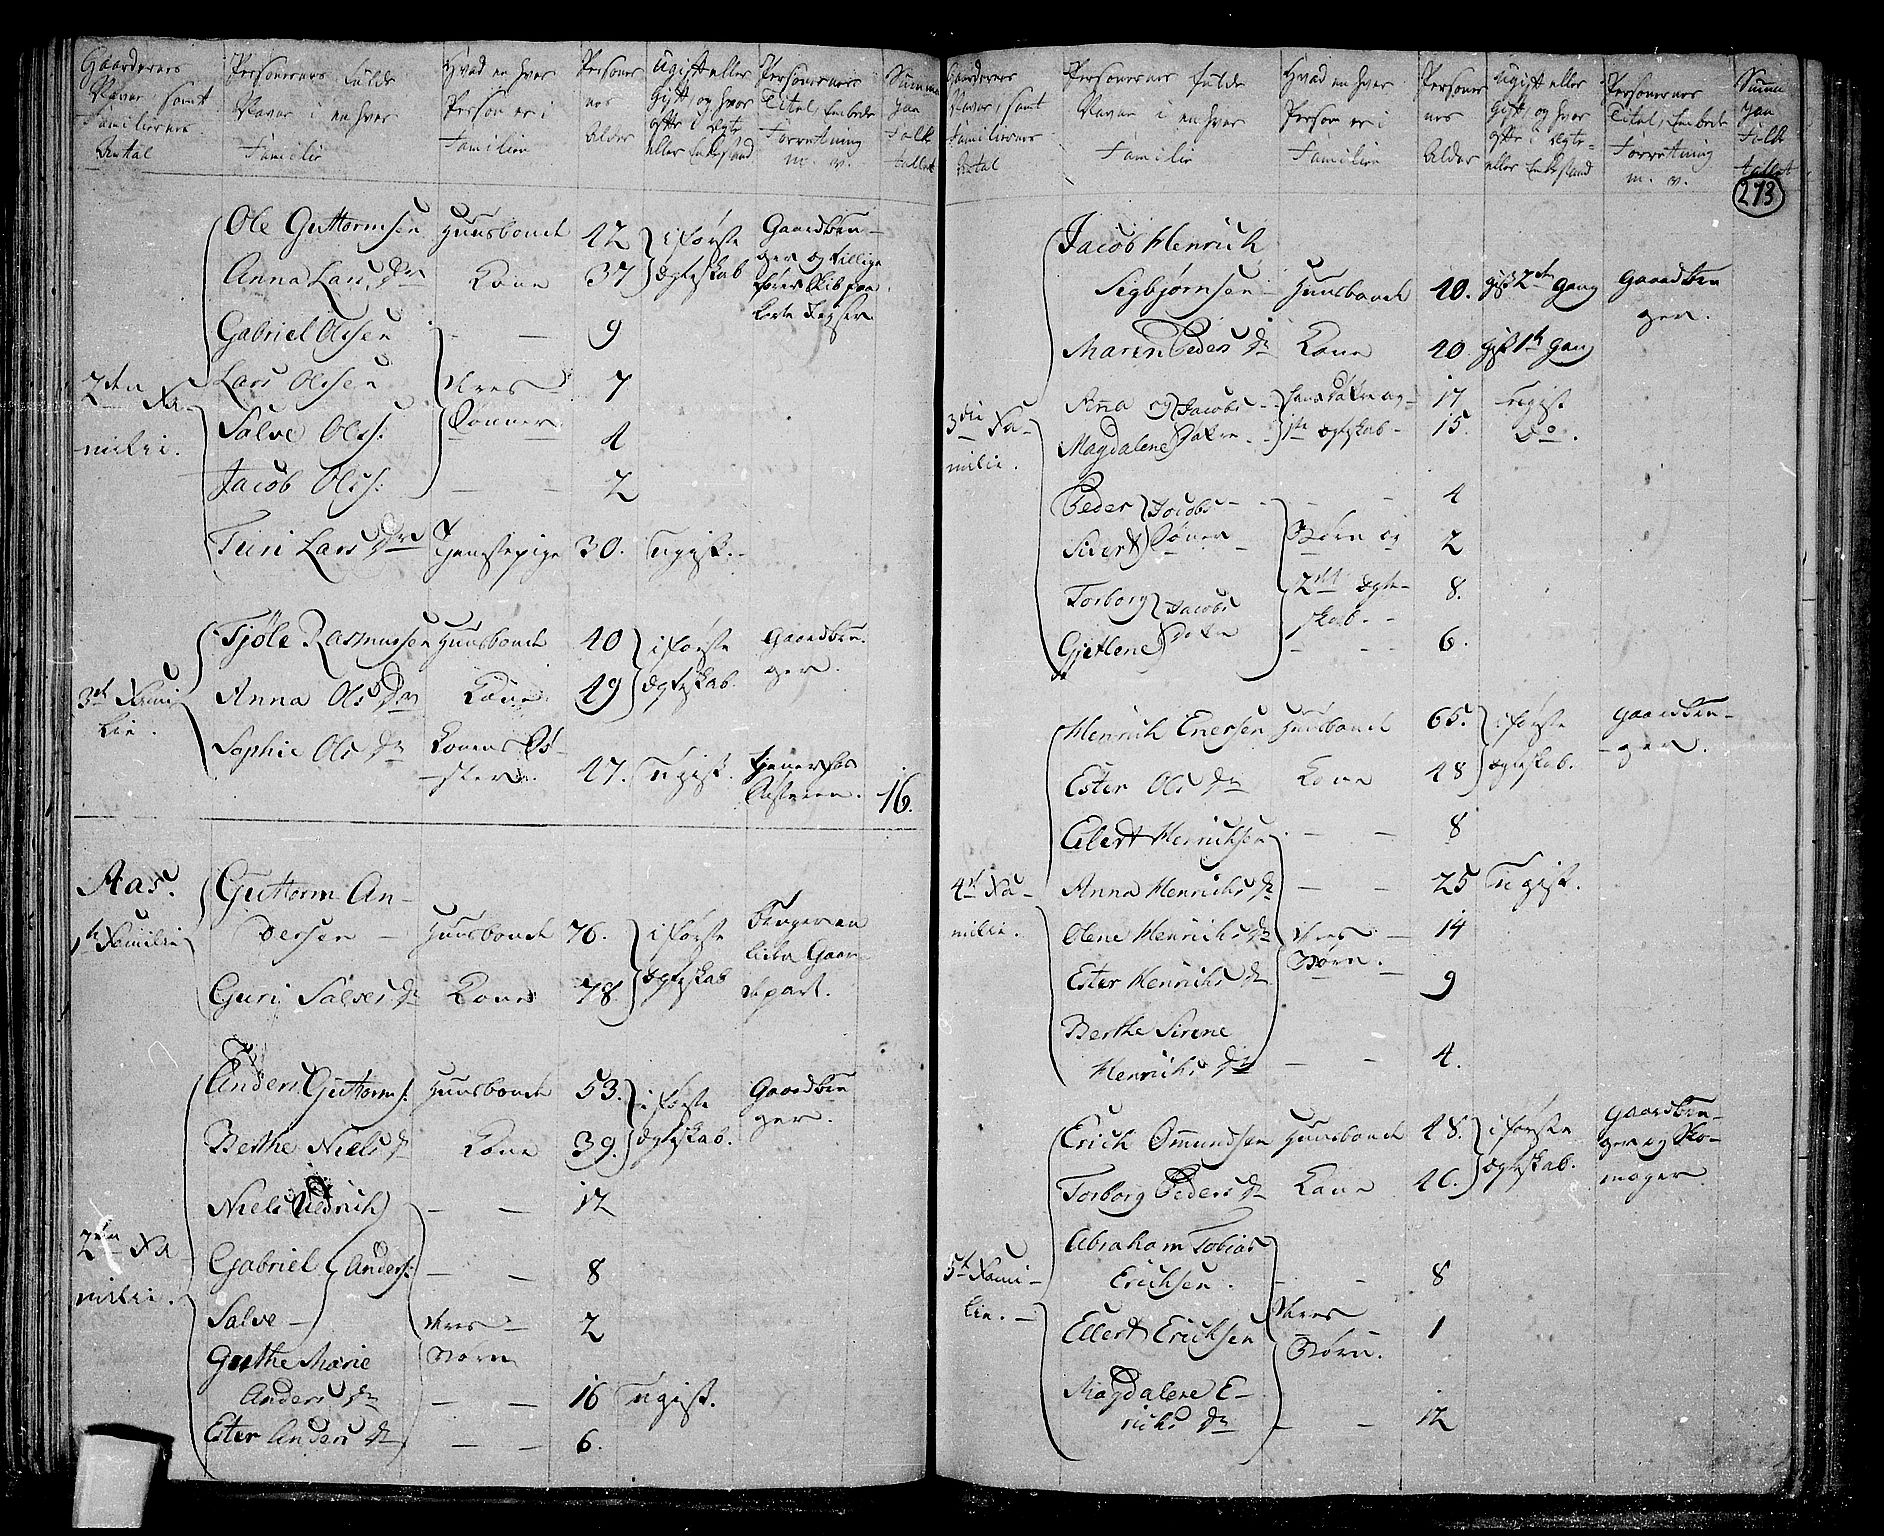 Gaardenes Navne, samt Familiernes Antal
Personernes fulde Navne i enhver Familie
Hvad enhver Person er i Familien
Personernes Alder
Ugift eller Gift, og hvor ofte i Ægte- eller Enkestand
Personernes Titel, Embede Forretning m. v.
Summa paa Folketallet
2den Familie.
Ole Guttormsen Huusbonde 42 i første Ægteskab Gaardbruger og tillige fører Skib paa
Anna Lars Dr Kone 37
Gabriel Olsen — — 9
Lars Olsen deres 7
Salve Ols: Sønner 4
Jacob Ols: — — 2
Turi Lars Dr Tjenestepige 30. Ugift.
3de Familie.
Tjøle Rasmussen Huusbonde 40 i første Gaardbruger.
Anna Ols Dr Kone 49 Ægteskab.
Sophie Ols Dr Konens Søster. 47. Ugift. tjener for 16.
Aas.
1te Familie
Guttorm Andersen — Huusbonde 76. i første Ægteskab bruger en liden Gaardepart.
Guri Salves Dr Kone 78.
2den Familie.
Anders Guttorms: Huusbonde 53. i første Gaardbruger.
Berthe Niels Dr Kone 39. Ægteskab.
Niels — — 12
Gabriel Anders: — — 8
Salve — deres 2
Guthe Marie Børn
Anders Dr — — 16 Ugift.
Ester Anders Dr — — 6.
Gaardenes Navne, samt Familiernes Antal
Personernes fulde Navne i enhver Familie
Hvad enhver Person er i Familien
Personernes Alder
Ugift eller Gift, og hvor ofte i Ægte- eller Enkestand
Personernes Titel, Embede Forretning m. v.
Summa paa Folketallet
273
3die Familie.
Jacob Henrich
Sigbjørnsen Huusbonde 40. gift 2den Gang Gaardbruger.
Maren Peders Dr Kone 40. gift 1te Gang
Anna og Jacobs 17. Ugift
Magdalene Døtre 1te Ægteskab 15. Do.
Peder Jacobs — — 4
Sivert Sønner Børn af 2
Torborg Jacobs 2det Ægteskab. 8.
Gjetlene Døtre — — 6.
4de Familie.
Henrich Enersen Huusbonde 65. i første Gaardbruger.
Ester Ols Dr Kone 48 Ægteskab.
Eilert Henrichsen — — 8
Anna Henrichs Dr — — 25 Ugift.
Olene Henrichs Dr deres — 14
Ester Henrichs Dr Børn. 9
Berthe Sirene
Henrichs Dr — — 4.
5te Familie.
Erich Omundsen Huusbonde 48. i første Gaardbruger og Skomager
Torborg Peders Dr Kone 40. Ægteskab.
Abraham Tobias
Erichsen. — — 8
Ellert Erichsen deres 1
Magdalene E- Børn.
richs Dr — — 12